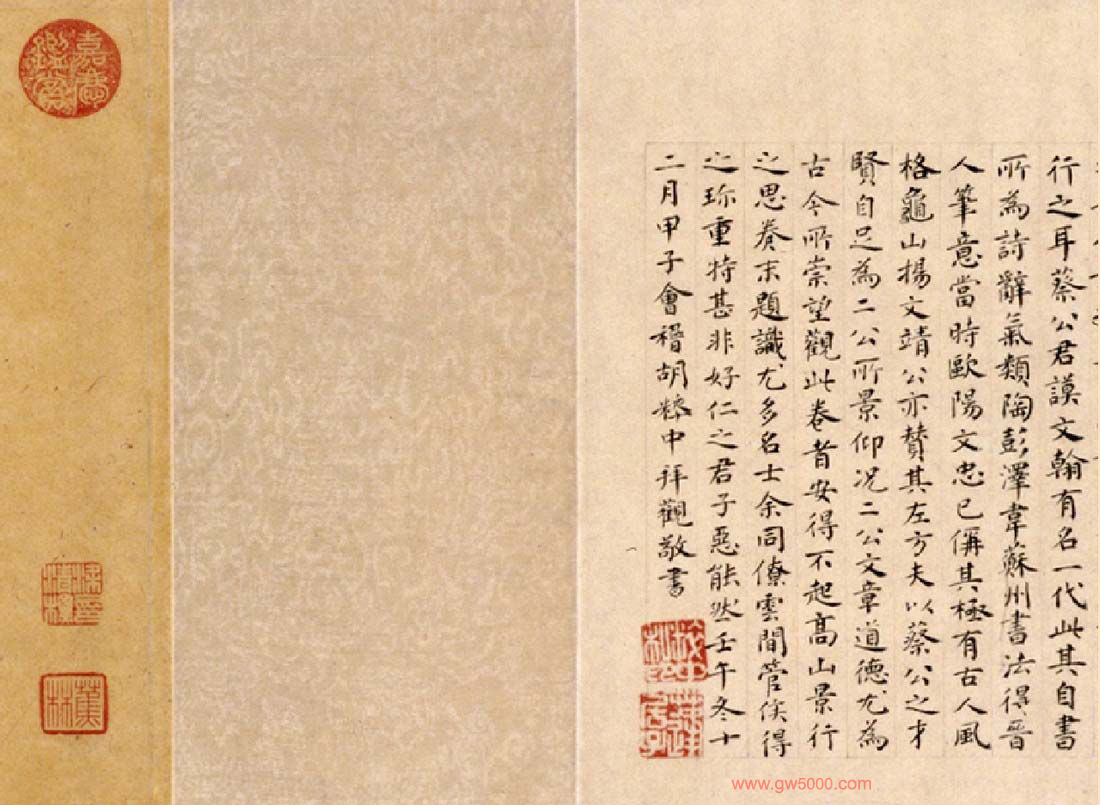 行之耳蔡公君謨文翰有名一代此其自書
所為詩辭氣類陶彭澤韋蘇州書法得晉
人筆意當時歐陽文忠已偁其極有古人風
格龜山楊文靖公亦贊其左方夫以蔡公之才
賢自足為二公所景仰況二公文章道德尤為
古今所崇望觀此卷者安得不起高山景行
之思卷末題識尤多名士余同僚雲間管侯得
之珎重特甚非好仁之君子惡能然壬午冬十
二月甲子會稽胡粹中拜觀敬書
嘉慶鑑賞
蕉林
www.gw5000.com